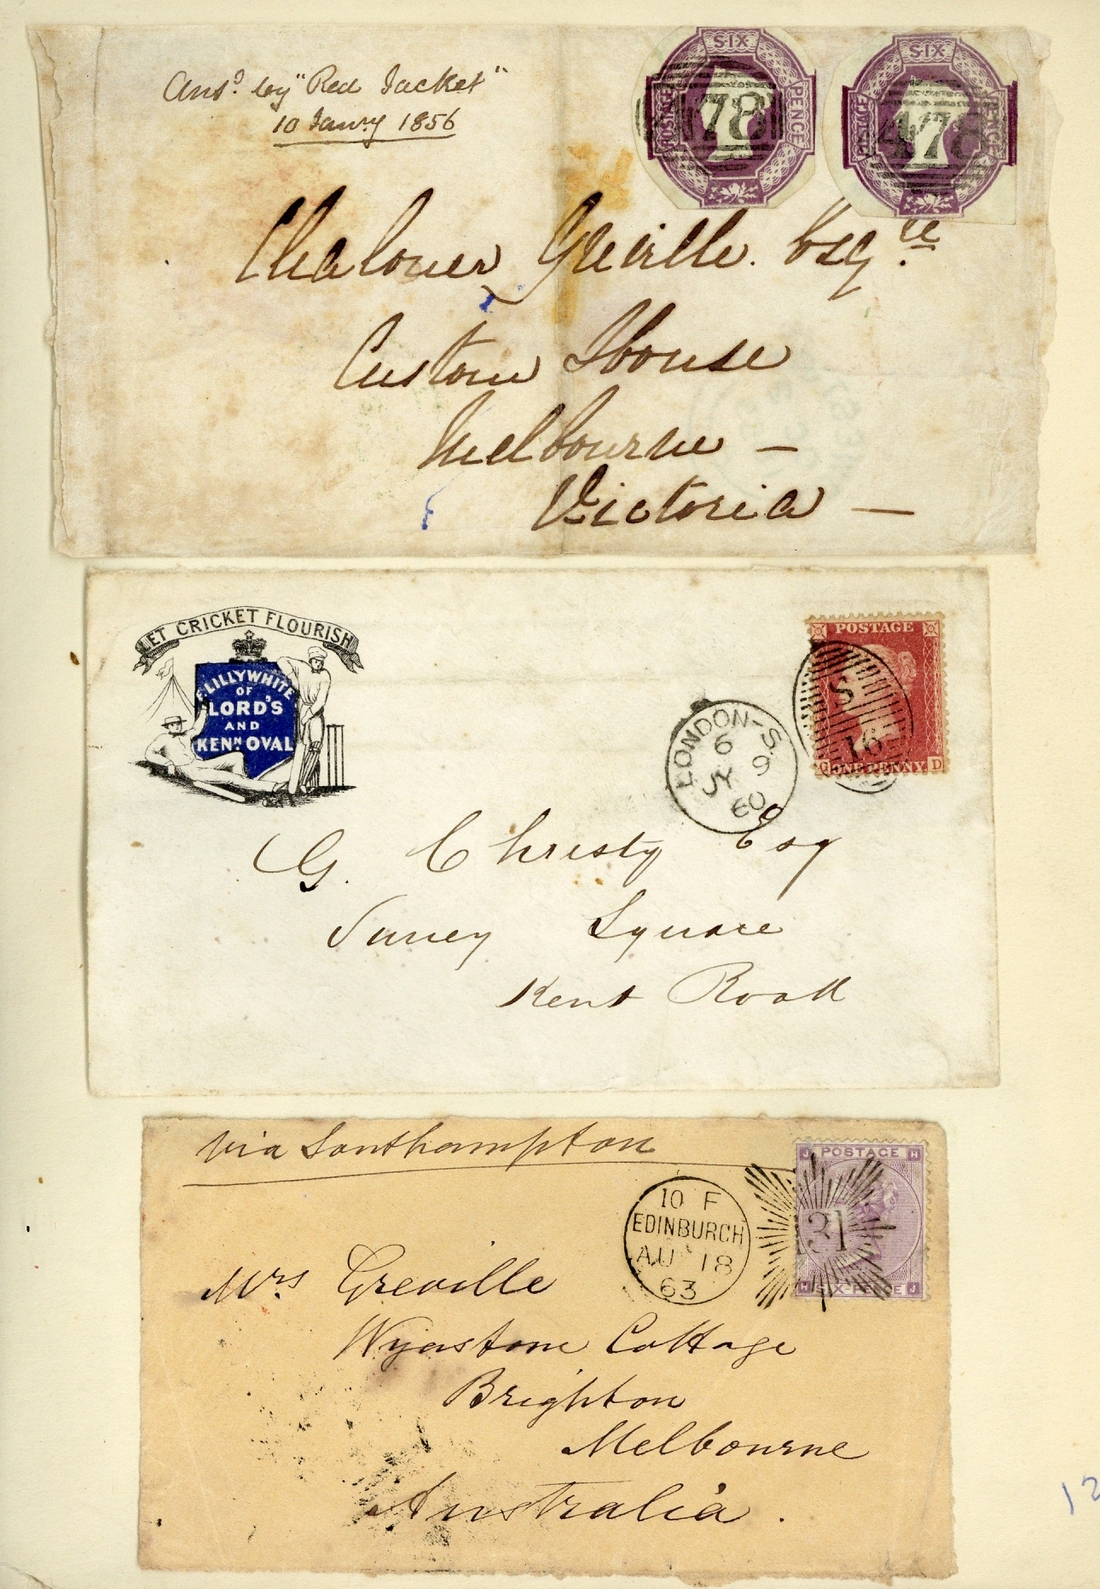 Ansd. by "Red Jacket"
10 Janry 1856
SIX
POSTAGE
PENCE
478
SIX
POSTAGE
PENCE
478
Chaloner Greville. Esqre
Custom House
Melbourne —
Victoria —
LET CRICKET FLOURISH
F. LILLYWHITE
OF
LORD'S
AND
KENN OVAL
LONDON-S
6
JY 9
60
POSTAGE
S
16
Q ONE PENNY D
G. Christy Esq
Surrey Square
Kent Road
via Southampton
10 F
EDINBURGH
AU 18
63
J POSTAGE H
31
H SIX PENCE J
Mrs Greville
Wyastone Cottage
Brighton
Melbourne
Australia.
12